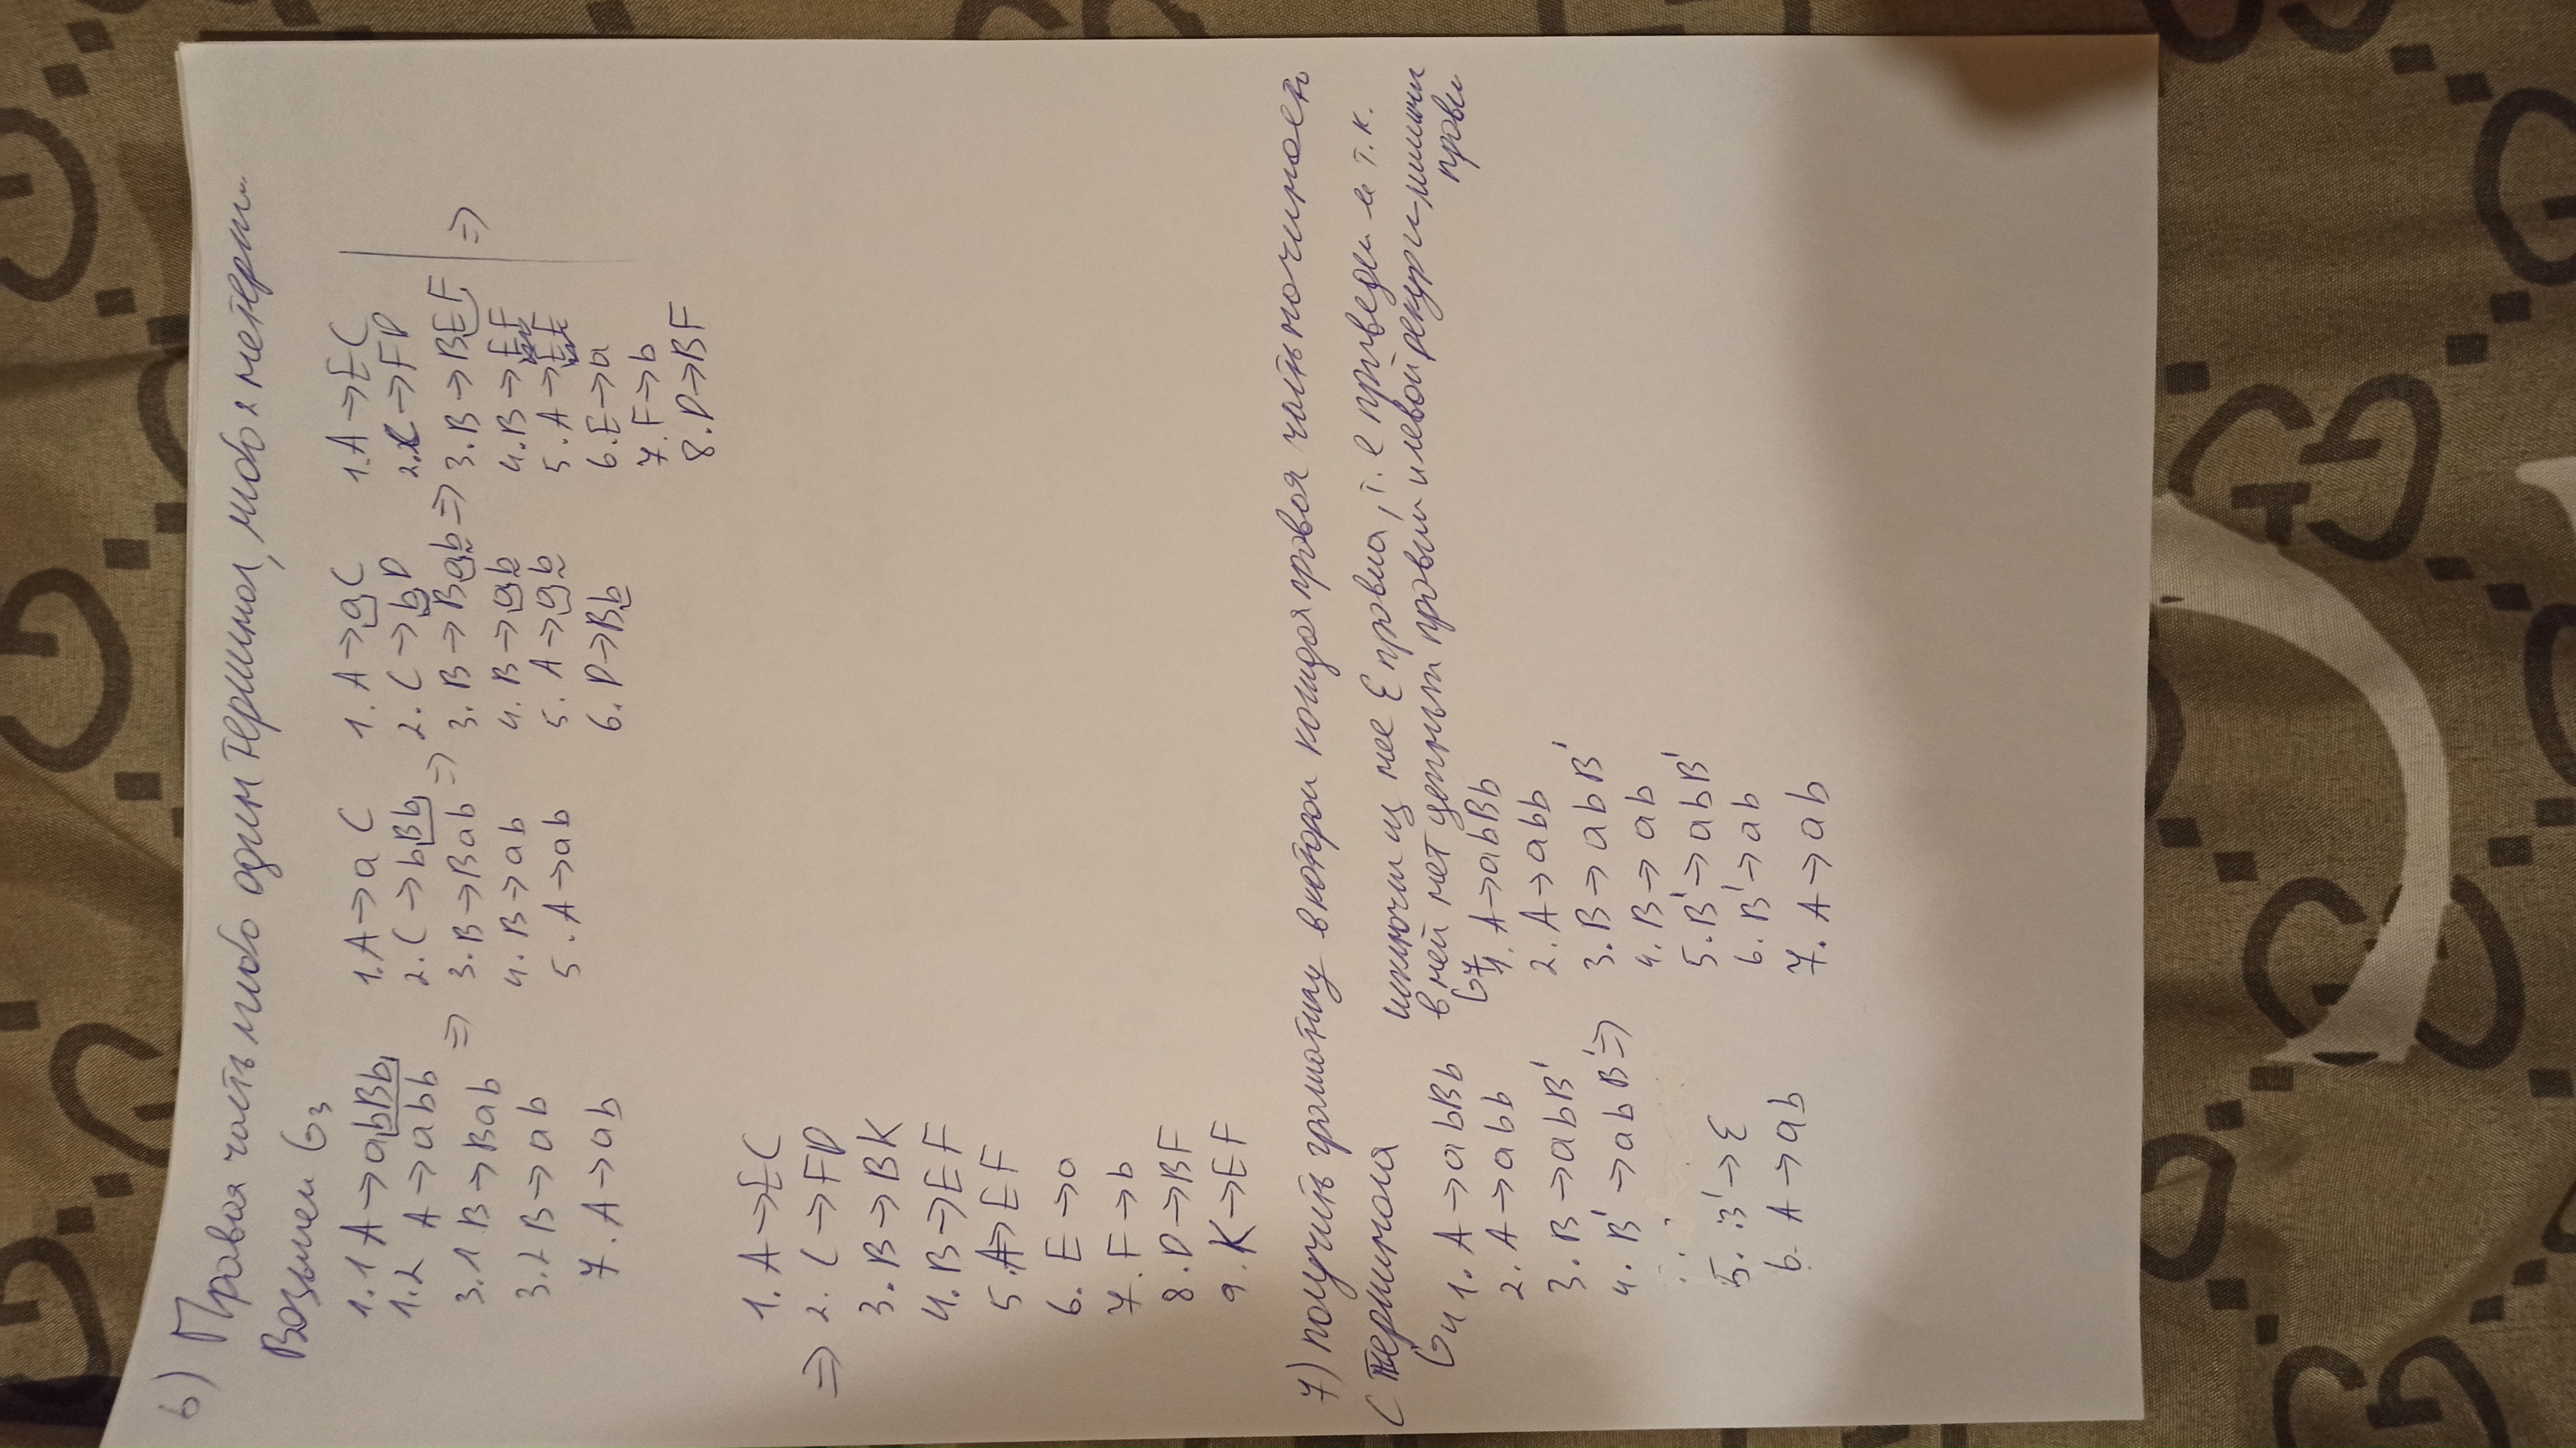 6) Правая часть либо один терминал, либо 2 нетерм
Возьмем G3
1.1 A→abBb
1.2 A→abb
3.1 B→Bab
3.2 B→ab
7. A→ab
⇒
1. A→aC
2. C→bBb
3. B→Bab
4. B→ab
5. A→ab
⇒
1. A→aC
2. C→bD
3. B→Bab
4. B→ab
5. A→ab
6. D→Bb
⇒
1. A→EC
2. C→FD
3. B→BEF
4. B→EF
5. A→EF
6. E→a
7. F→b
8. D→BF
⇒
1. A→EC
⇒ 2. C→FD
3. B→BK
4. B→EF
5. A→EF
6. E→a
7. F→b
8. D→BF
9. K→EF
7) получить граматику в которой каждая правая часть начинает
с терминала
исключи из нее ε правиа, т.е приведем т.к.
в ней нет цепных правил и левой рекурс
прави
G4
1. A→abBb
2. A→abb
3. B→abB'
4. B'→abB' ⇒
5. B'→ε
6. A→ab
G7
1. A→abBb
2. A→abb
3. B→abB'
4. B→ab
5. B'→abB'
6. B'→ab
7. A→ab